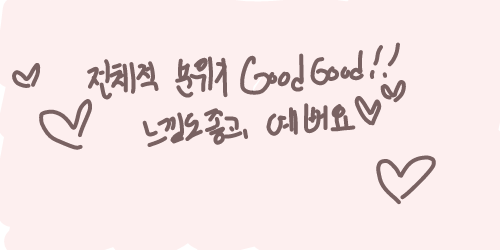 전체적 분위기 Good Good!!
느낌도 좋고, 예뻐요